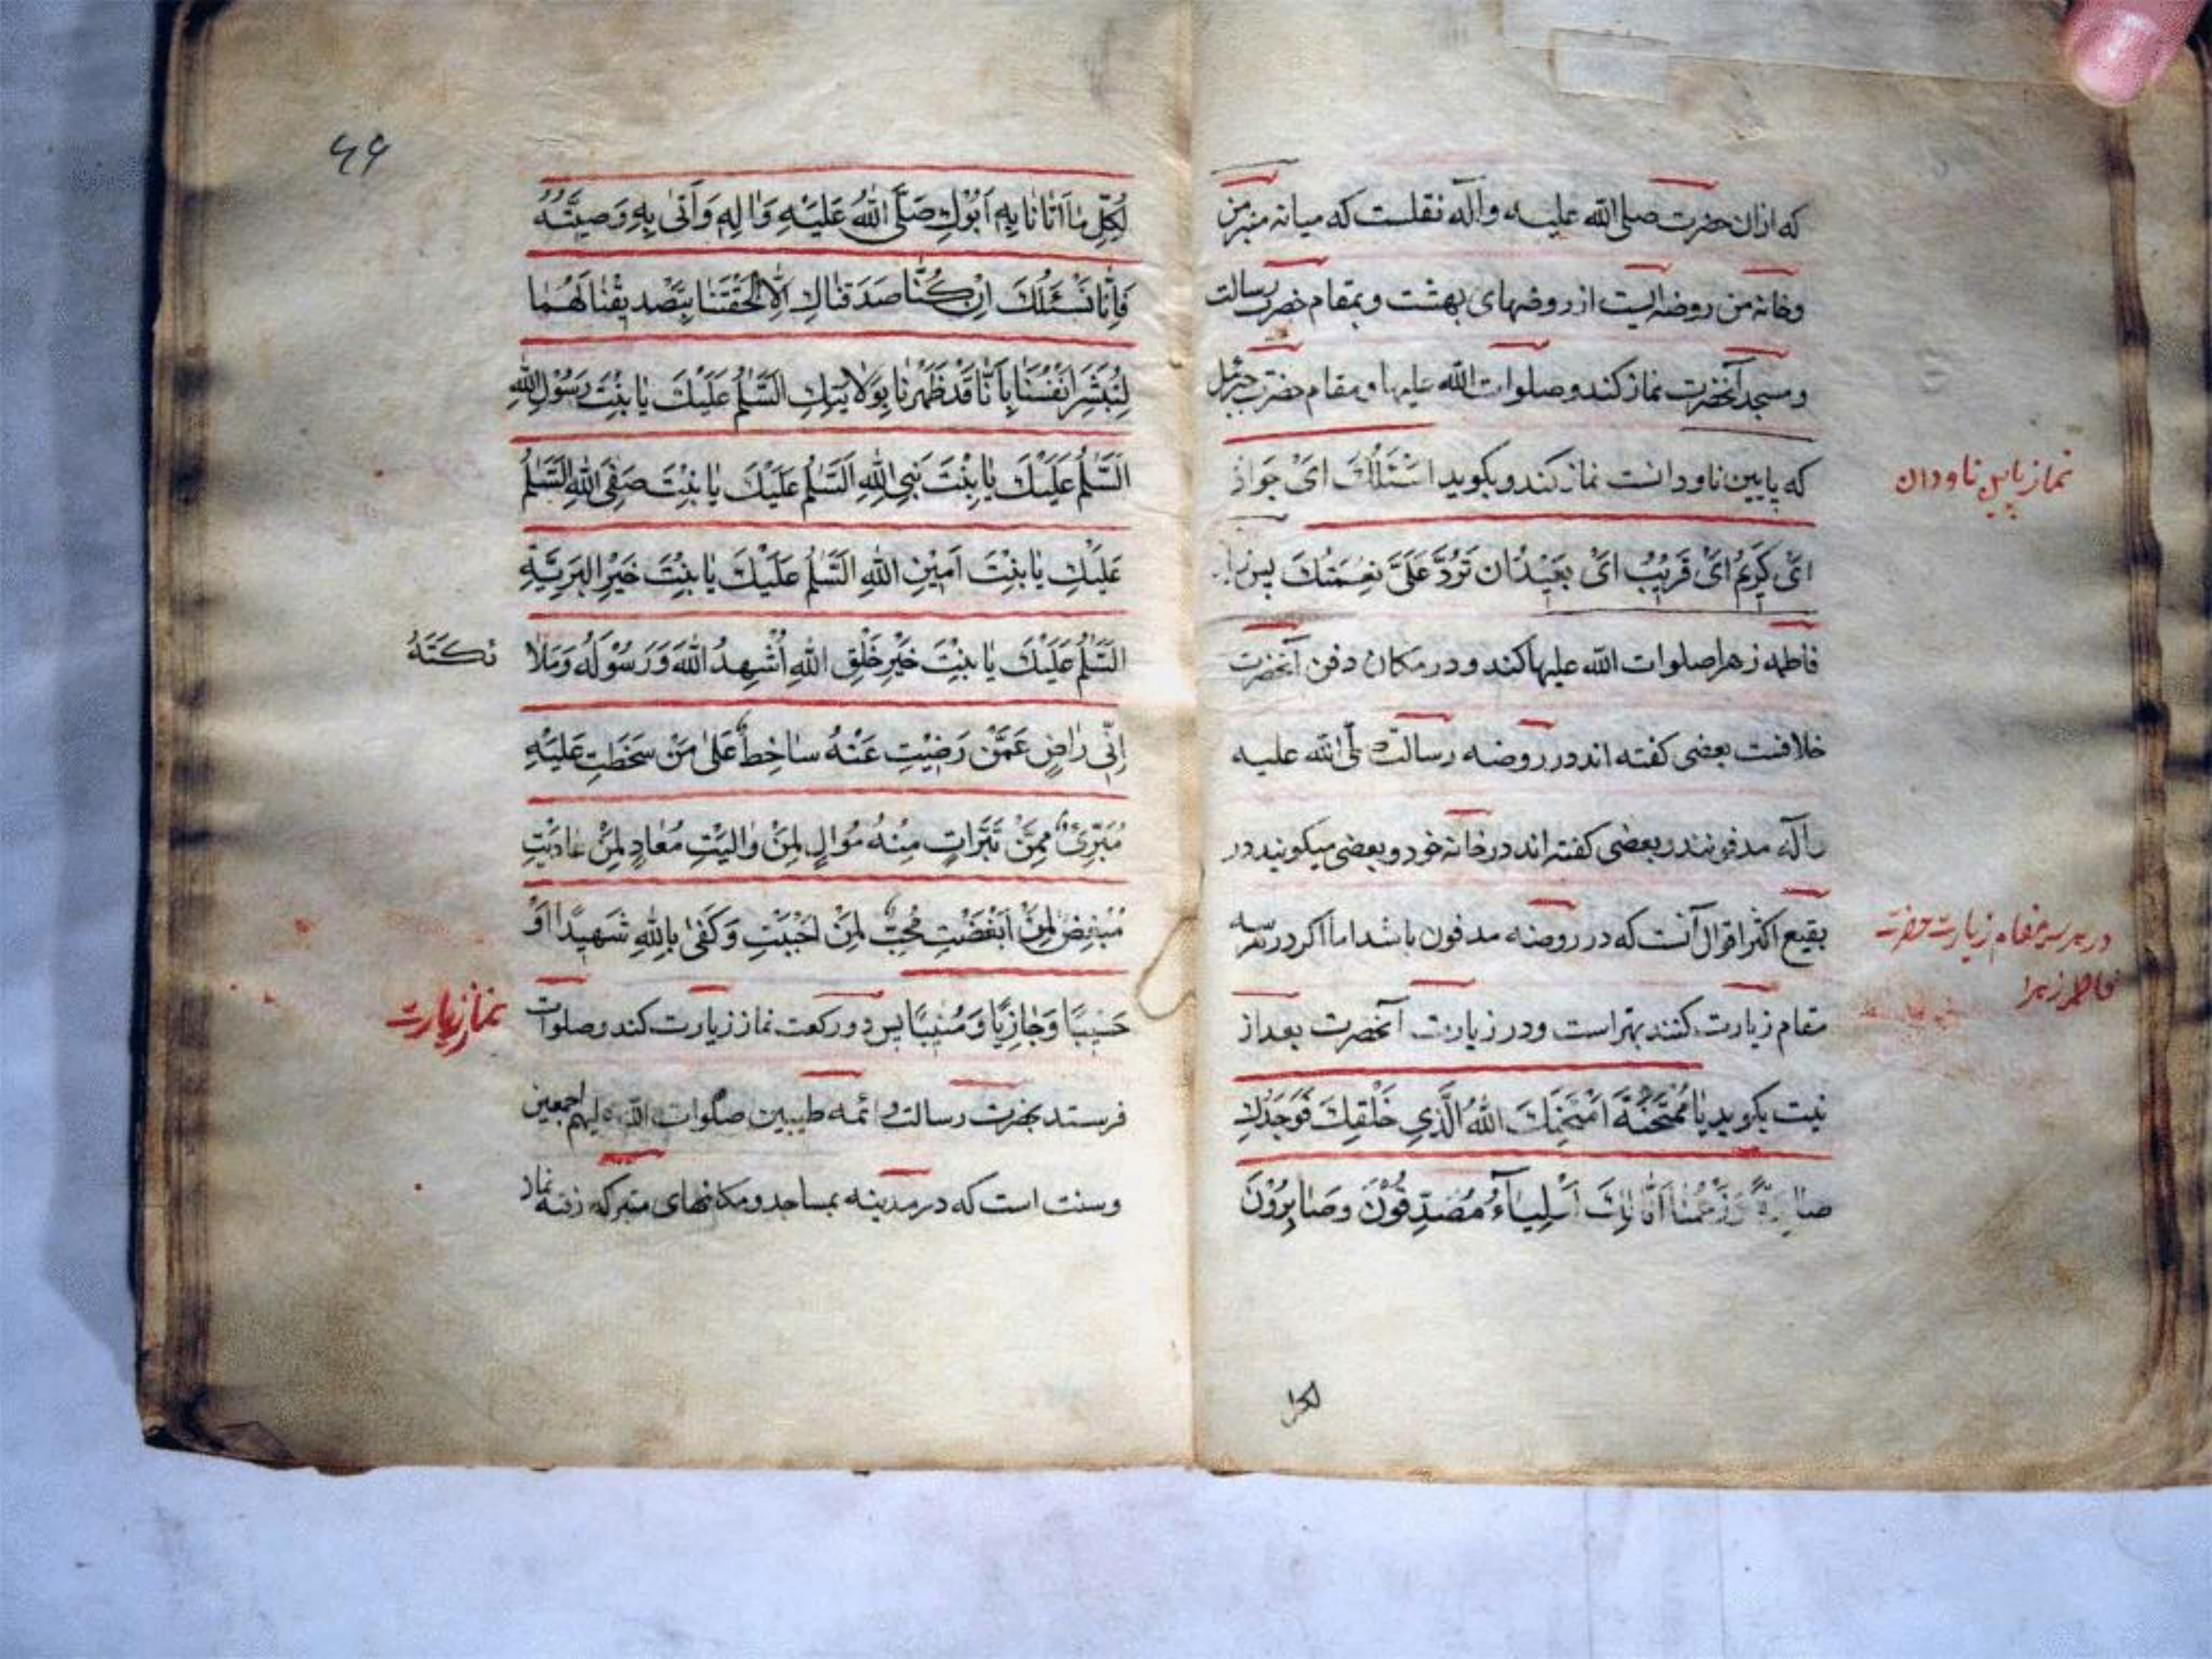 که ازان حضرت صلی الله علیه وآله نقلست که میانه منبر من
وخانه من روضه ایست از روضهای بهشت و بمقام حضرت رسالت
ومسجد آنحضرت نماز کند وصلوات الله علیها و مقام حضرت جبرئیل
که پایین ناودانست نماز کند وبکوید اَسْئَلُكَ اَیْ جَوادُ
نماز پایین ناودان
اَیْ كَرِیمُ اَیْ قَرِیْبُ اَیْ بَعِیْدُ اَنْ تَرُدَّ عَلَیَّ نِعْمَتَكَ پس
فاطمه زهرا صلوات الله علیها کند و در مکان دفن آنحضرت
خلافست بعضی کفته اند در روضه رسالت الله علیه
وآله مدفونند وبعضی کفته اند در خانه خود و بعضی میکویند در
بقیع اکثر اقوال آنست که در روضه مدفون باشد اما اکر در هرسه
در هر سه مقام زیارت حضرت
فاطمه زهرا
مقام زیارت کنند بهتر است ودر زیارت آنحضرت بعد از
نیت بکوید یٰا مُمْتَحَنَةُ امْتَحَنَكِ اللهُ الَّذِی خَلَقَكِ فَوَجَدَكِ
وَزَعَمْنا اَنَّا لَكِ اَوْلِیٰاۤءُ مُصَدِّقُوْنَ وَصٰابِرُوْنَ
لکل
۶۶
لِكُلِّ مٰا اَتٰانٰا بِهِ اَبُوْكِ صَلَّی اللهُ عَلَیْهِ وَاٰلِهِ وَاَتٰی بِهِ وَصِیُّهُ
فَاِنّٰا نَسْئَلُكَ اِنْ كُنّٰا صَدَقْنٰاكِ اِلّٰا اَلْحَقْتَنٰا بِتَصْدِیْقِنٰا لَهُمٰا
لِنُبَشِّرَ اَنْفُسَنٰا بِاَنّٰا قَدْ طَهُرْنٰا بِوَلٰایَتِكِ اَلسَّلٰمُ عَلَیْكَ یٰا بِنْتَ رَسُوْلِ اللهِ
اَلسَّلٰمُ عَلَیْكَ یٰا بِنْتَ نَبِیِّ اللهِ اَلسَّلٰمُ عَلَیْكَ یٰا بِنْتَ صَفِیِّ اللهِ اَلسَّلٰمُ
عَلَیْكِ یٰا بِنْتَ اَمِیْنِ اللهِ اَلسَّلٰمُ عَلَیْكَ یٰا بِنْتَ خَیْرِ البَرِیَّةِ
اَلسَّلٰمُ عَلَیْكَ یٰا بِنْتَ خَیْرِ خَلْقِ اللهِ اُشْهِدُ اللهَ وَرَسُوْلَهُ وَمَلاٰ
ئکَتَهُ
اِنّی رٰاضٍ عَمَّنْ رَضِیْتِ عَنْهُ سٰاخِطٌ عَلٰی مَنْ سَخَطْتِ عَلَیْهِ
مُتَبَرِّیٌٔ مِمَّنْ تَبَرَّاتِ مِنْهُ مُوَالٍ لِمَنْ وٰالَیْتِ مُعٰادٍ لِمَنْ عٰادَیْتِ
مُبْغِضٌ لِمَنْ اَبْغَضْتِ مُحِبٌّ لِمَنْ اَحْبَبْتِ وَكَفٰی بِاللهِ شَهِیْدًا اَوْ
حَسِیْبًا وَجٰازِیًا وَمُثِیْبًا پس دو رکعت نماز زیارت کند وصلوات
نماز زیارت
فرستد بحضرت رسالت و ائمه طیبین صلوات الله علیهم اجمعین
وسنت است که در مدینه بمساجد ومکانهای متبرکه رفته نماز